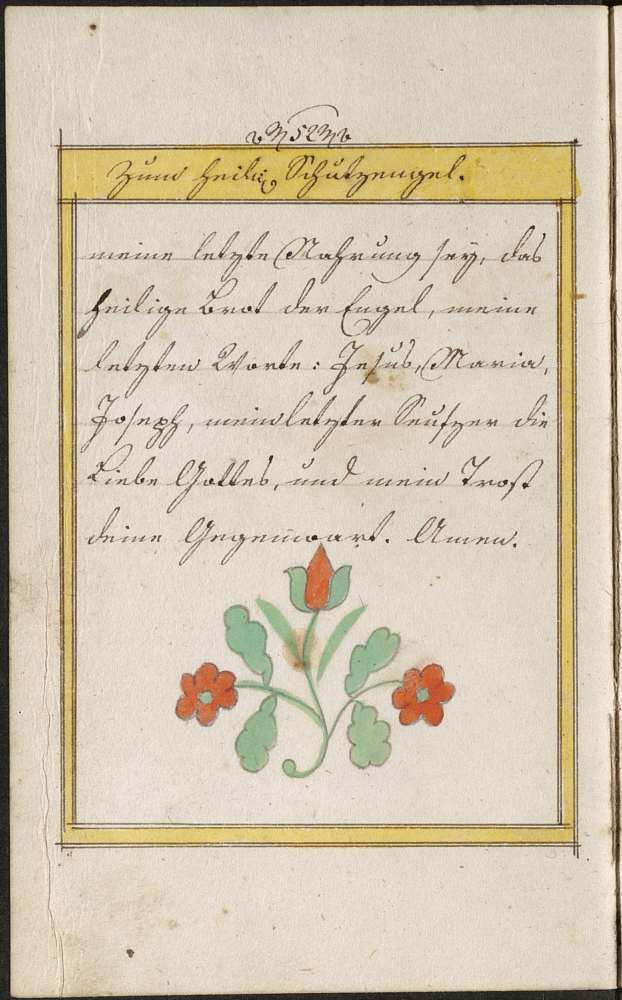 52
Zum heilig Schutzengel.
meine letzte Nahrung sey, das
heilige Brot der Engel, meine
letzten Worte: Jesus, Maria,
Joseph, mein letzter Seufzer die
Liebe Gottes, und mein Trost
deine Gegenwart. Amen.